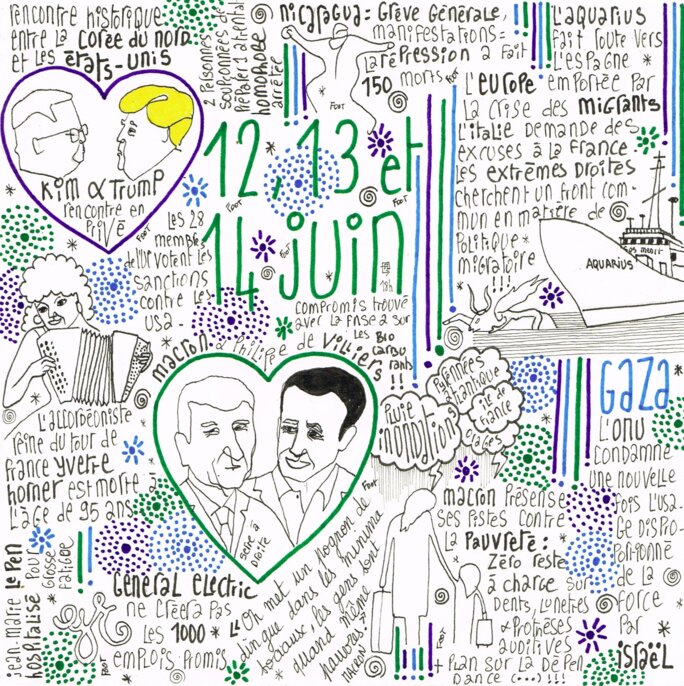 rencontre historique
entre la Corée du nord
et les états-unis
Kim & Trump
rencontre en
privé
2 personnes
soupçonnées de
préparer 1 attentat
homophobe
arrêtées
Nicaragua: Grève générale,
manifestations:
la répression a fait
150 morts
foot
L'Aquarius
fait route vers
l'Espagne *
L'Europe emportée par
la crise des migrants
L'Italie demande des
excuses à la France.
Les extrêmes droites
cherchent un front com-
mun en matière de
politique *
migratoire
!!!
AQUARIUS
12, 13 et
14 juin
18h
foot
foot
foot
foot
foot
Les 28
membres
de l'UE votent les
sanctions
contre les
USA-
compromis trouvé
avec la FNSEA sur
les Bio
carbu
rants
!!!
macron & Philippe de Villiers
serre à
droite
foot
L'accordéoniste
reine du tour de
France yvette
horner est morte à
l'âge de 95 ans
Pluie
inondations
Pyrénées
atlantique
île de
France
orages
GAZA
L'ONU
condamne
une nouvelle
fois l'usa-
ge dispro-
portionné
de la
force
par
israël
macron présense
ses pistes contre
la pauvreté:
Zéro reste
à charge sur
dents, lunettes
& prothèses
auditives
+ Plan sur la dépen
dance (...) !!!
foot
foot
jean-marie Le Pen
hospitalisé pour
grosse
fatigue
General Electric
ne créera pas
les 1000 *
emplois promis
foot
foot
"On met un pognon de
dingue dans les minima
sociaux: les gens sont
quand même
pauvres"
macron